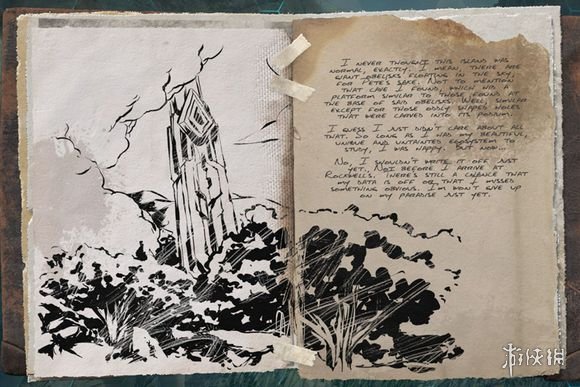 I NEVER THOUGHT THIS ISLAND WAS
NORMAL, EXACTLY. I MEAN, THERE ARE
GIANT OBELISKS FLOATING IN THE SKY,
FOR PETE'S SAKE. NOT TO MENTION
THAT CAVE I FOUND, WHICH HAD A
PLATFORM SIMILAR TO THOSE FOUND AT
THE BASE OF SAID OBELISKS. WELL, SIMILAR
EXCEPT FOR THOSE ODDLY SHAPED HOLES
THAT WERE CARVED INTO ITS PODIUM.
I GUESS I JUST DIDN'T CARE ABOUT ALL
THAT. SO LONG AS I HAD MY BEAUTIFUL,
UNIQUE AND UNTAINTED ECOSYSTEM TO
STUDY, I WAS HAPPY. BUT NOW...
NO, I SHOULDN'T WRITE IT OFF JUST
YET. NOT BEFORE I ARRIVE AT
ROCKWELL'S. THERE'S STILL A CHANCE THAT
MY DATA IS OFF OR THAT I MISSED
SOMETHING OBVIOUS. I WON'T GIVE UP
ON MY PARADISE JUST YET.
游侠网